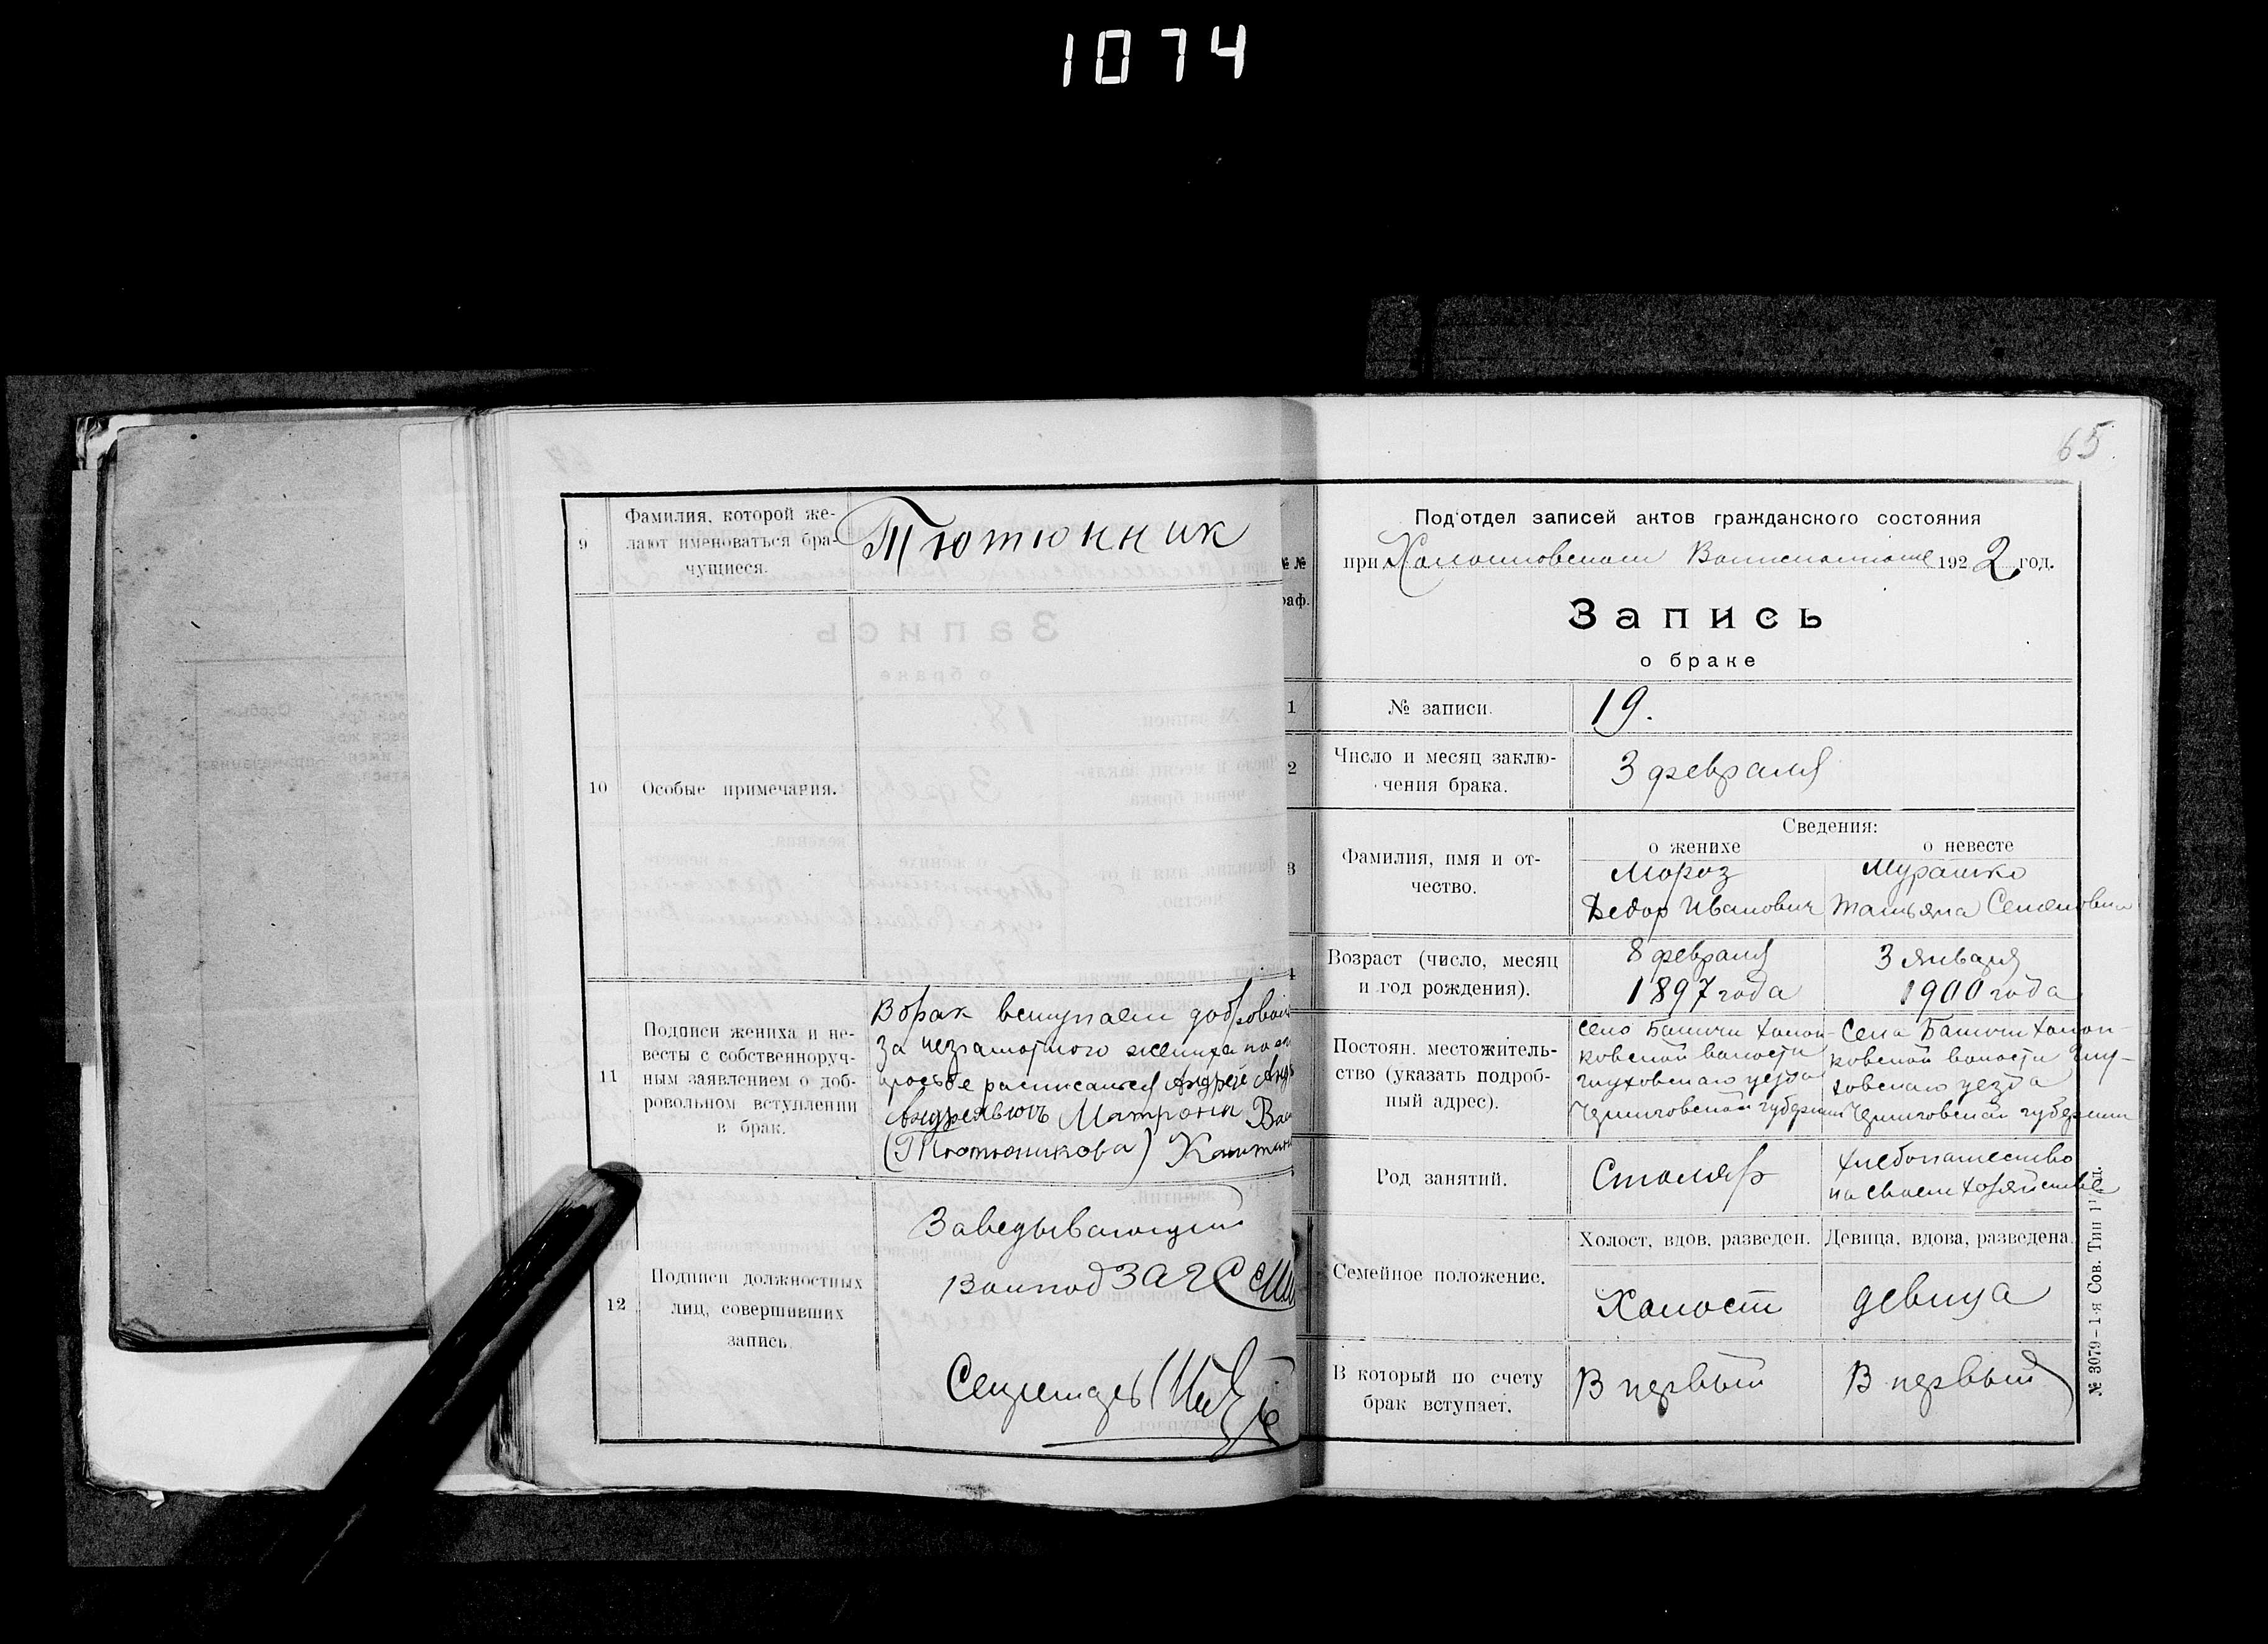 1074
65
9
Фамилия, которой же-
лают именоваться бра-
чущиеся.
Тютюнник
10
Особые примечания.
11
Подписи жениха и не-
весты с собственноруч-
ным заявлением о доб-
ровольном вступлении
в брак.
В брак вступаем добровол
За незгамотного жениха по его
просьбе расписался Андрей Анд
Андреявичъ Матрона Вас
(Тютюникова)
12
Подписи должностных
лиц, совершивших
запись.
Заведывающий
Волпод ЗАГС
Секретарь
№ №
раф.
Под'отдел записей актов гражданского состояния
при 1922 год.
Запись
о браке
1
№ записи.
19.
2
Число и месяц заклю-
чения брака.
3 февраля
3
Фамилия, имя и от-
чество.
Сведения:
о женихе
о невесте
Мороз
Федор Иванович
Мурашко
Татьяна Семеновна
4
Возраст (число, месяц
и год рождения).
8 февраля
1897 года
3 января
1900 года
Постоян. местожитель-
ство (указать подроб-
ный адрес).
село Баничи Холоп-
ковской волости
глуховского уезда
Черниговской губернии
Села Баничи Холоп-
ковской волости Глу-
ховского уезда
Черниговской губернии
Род занятий.
Столяр
хлебопашество
на своем хозяйстве
Семейное положение.
Холост, вдов, разведен.
Девица, вдова, разведена.
Холост
девица
В который по счету
брак вступает.
В первый
В первый
№ 3079-1-я Сов. Тип